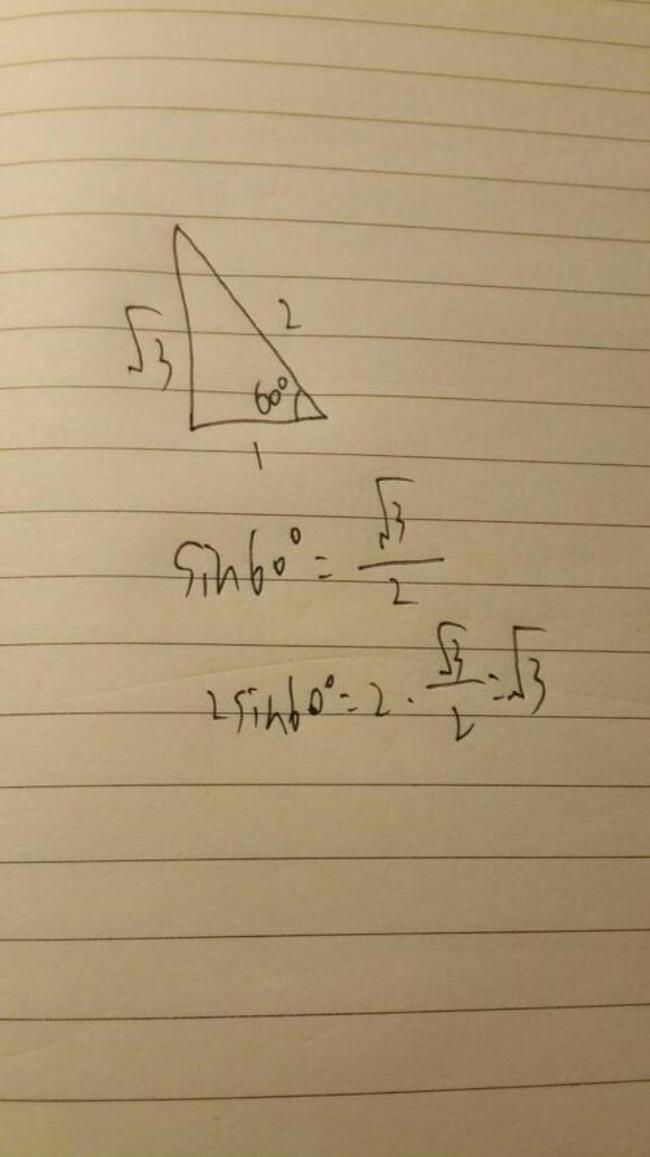 2
√3
60°
1
sin60° = √3/2
2sin60° = 2 · √3/2 = √3